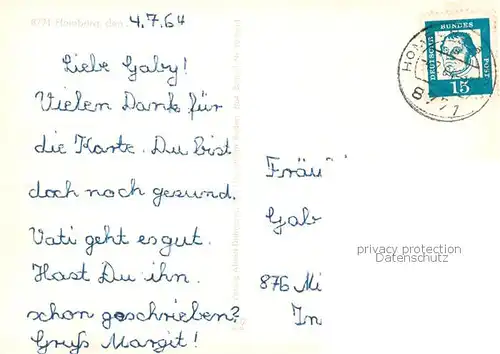 8771 Homburg, den 4.7.64
Liebe Gaby!
Vielen Dank für
die Karte. Du bist
doch noch gesund.
Vati geht es gut.
Hast Du ihn
schon geschrieben?
Gruß Margit!
DEUTSCHE BUNDES POST
15
HOM
8771
Fräu
Gab
privacy protection
Datenschutz
876 Mi
In